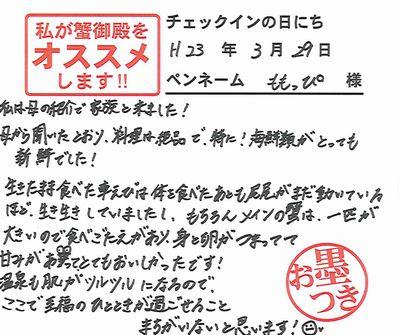 私が蟹御殿を
オススメ
します!!
チェックインの日にち
H23 年 3月 29日
ペンネーム ももっぴ 様
私は母の紹介で家族と来ました!
母から聞いたとおり、料理は絶品で、特に!海鮮類がとっても
新鮮でした!
生きたまま食べた車えびは体を食べたあとも尾尾がまだ動いている
ほど、生き生きしていましたし、もちろんメインの蟹は、一匹が
大いので食べごたえがあり、身と卵がつまってて
甘みがあってとてもおいしかったです!
温泉も肌がツルツルになるので、
ここで至福のひとときが過ごせること
まちがいないと思います!
お墨つき